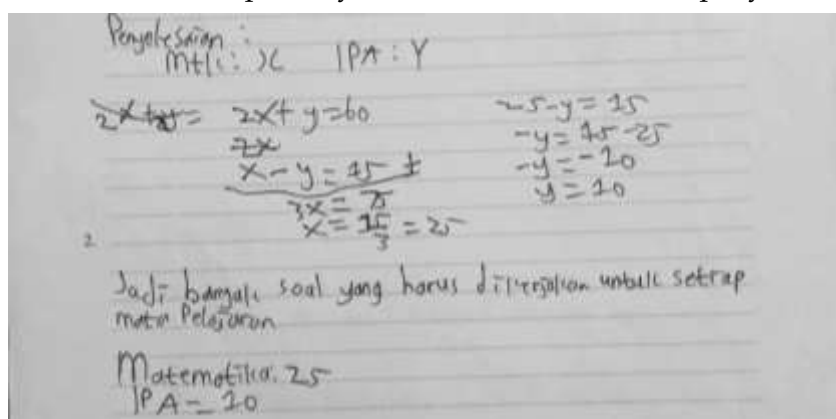 Penyelesaian :
Mtk : x IPA : Y
2x+y= 2x+y=60
2x
x-y=15 +
3x=75
x=75/3=25
25-y=15
-y=15-25
-y=-10
y=10
2
Jadi banyak soal yang harus dikerjakan untuk setiap
mata Pelajaran
Matematika: 25
IPA = 10